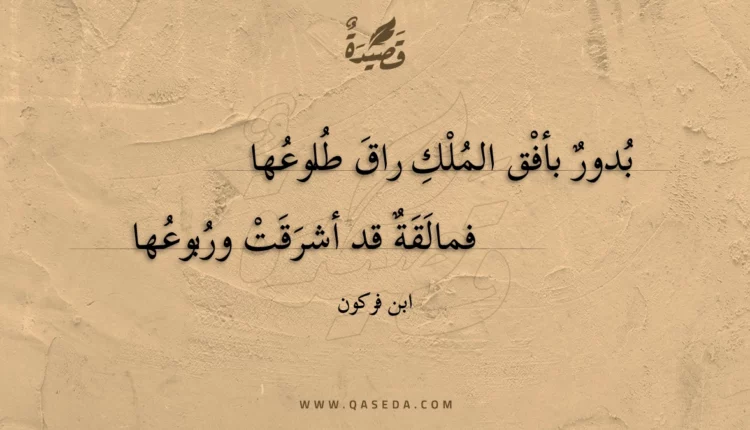 قَصِيدَةٌ
بُدورٌ بأفْق المُلْكِ راقَ طُلوعُها
فمالَقَةٌ قد أشرَقَتْ ورُبوعُها
ابن فركون
WWW.QASEDA.COM